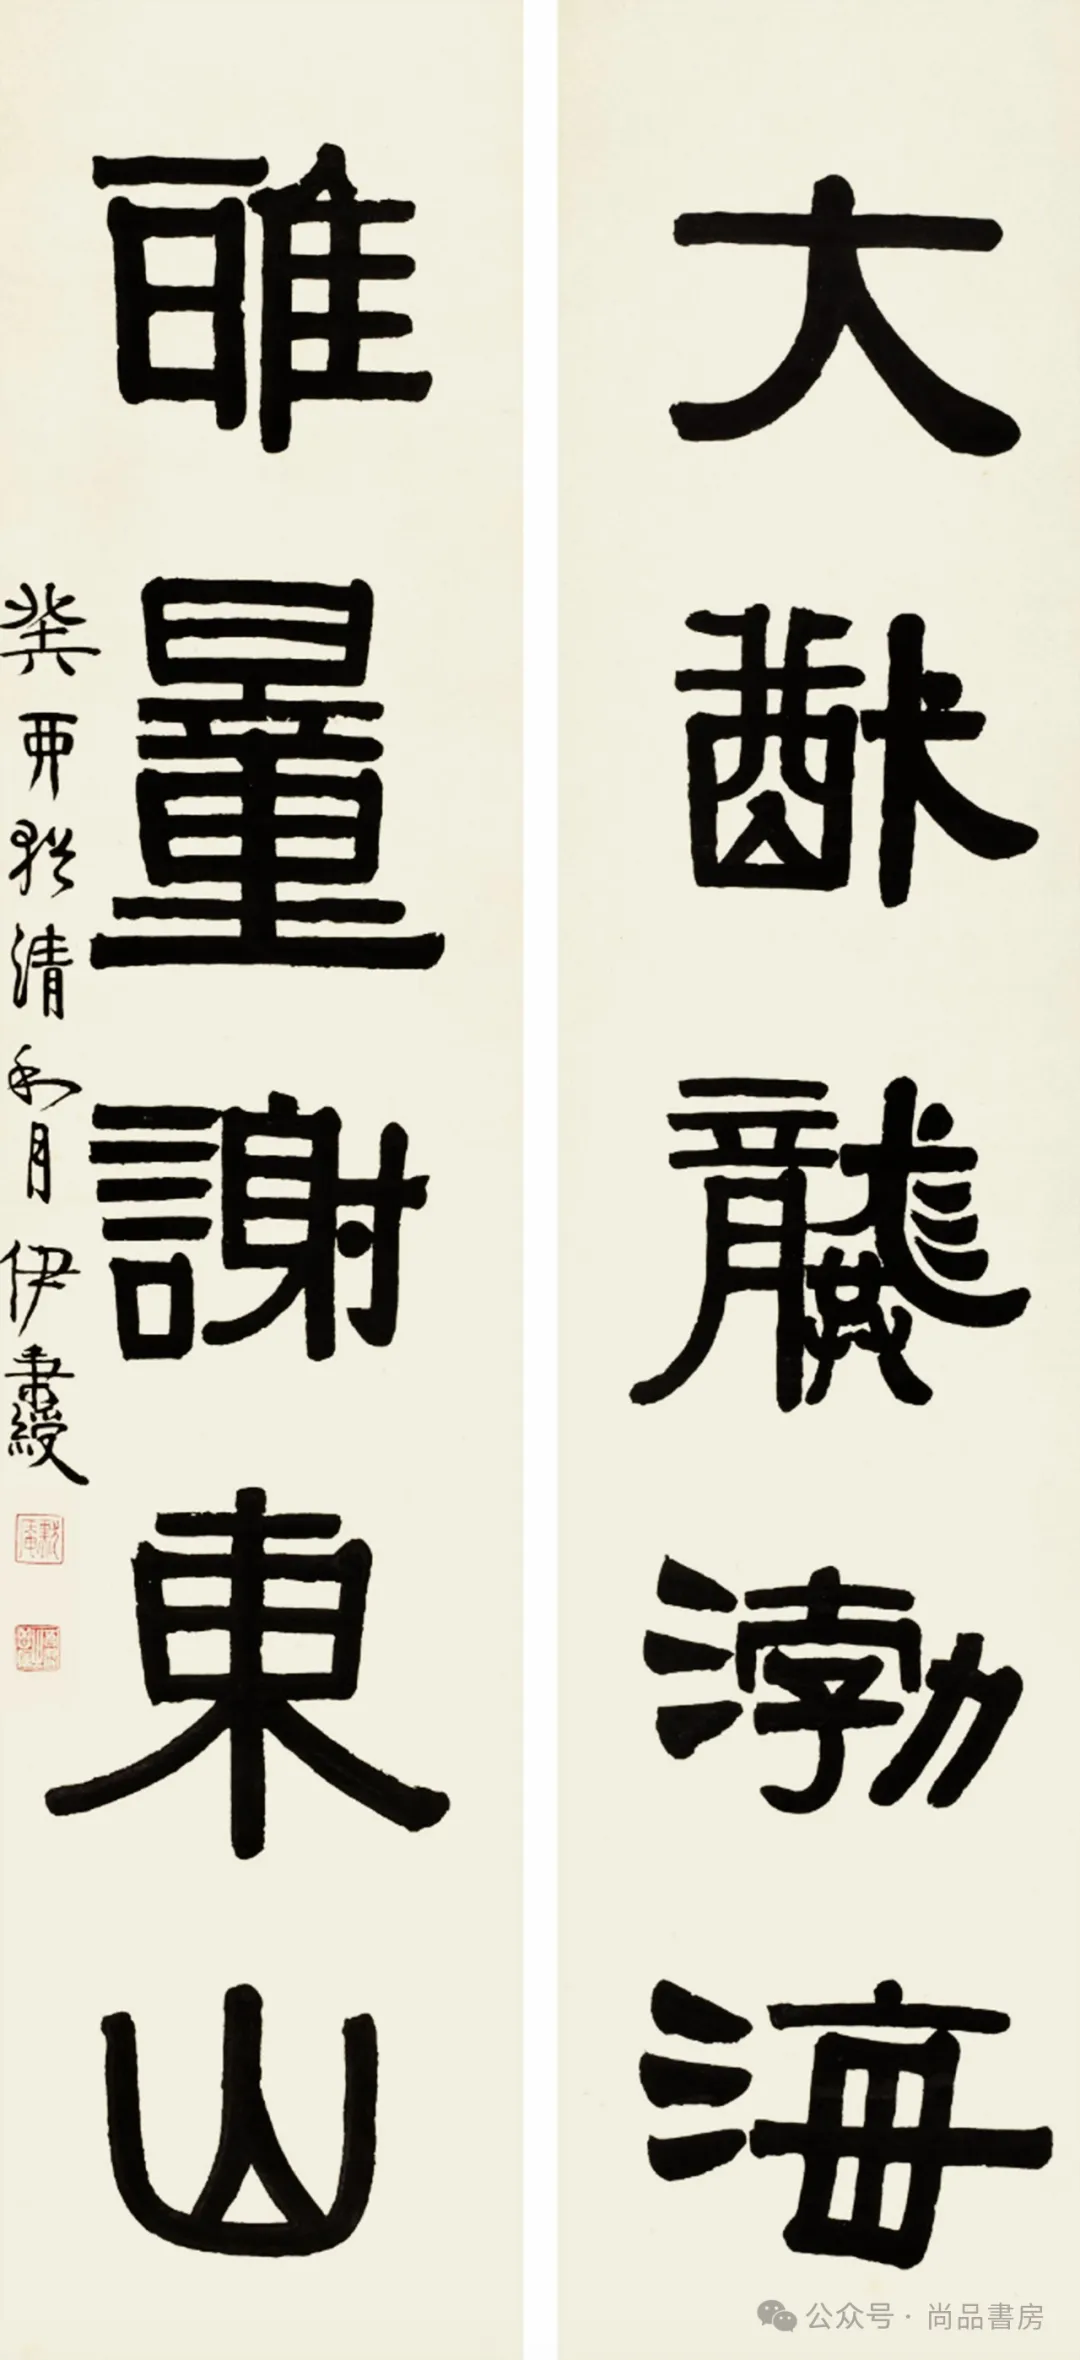 大猷龔渤海
雅量謝東山
癸酉猶清和月伊秉綬
公众号 · 尚品書房